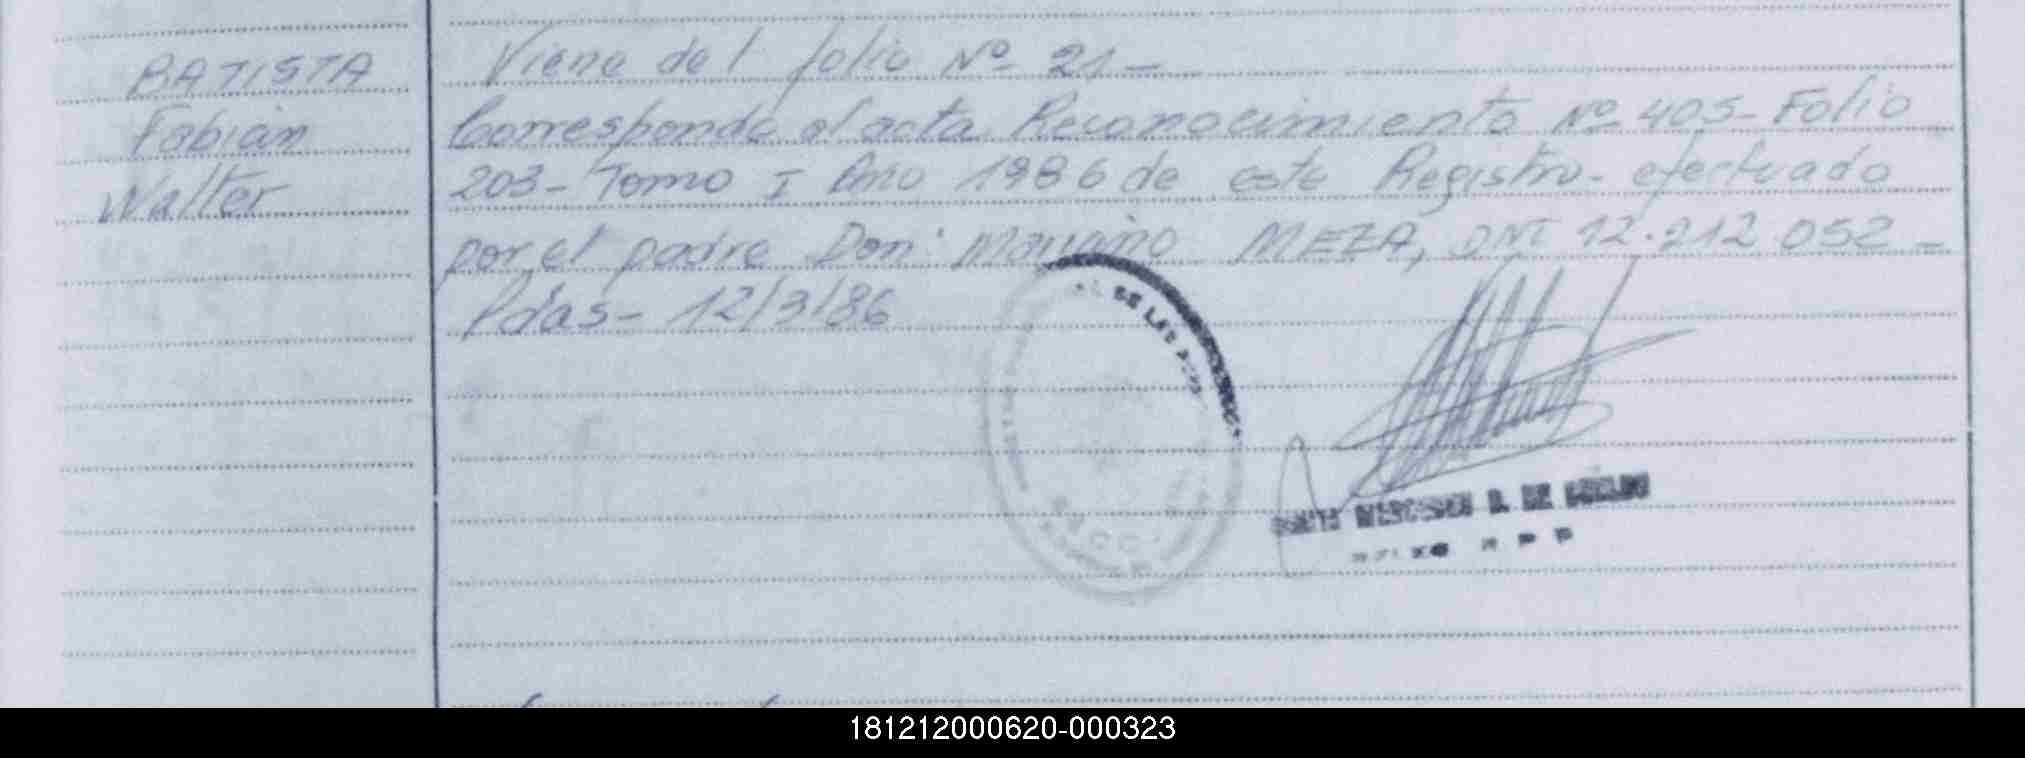 BATISTA
Fabian
Walter
Viene del folio Nº 21-
Corresponde al acta Reconocimiento Nº 405- Folio
203- Tomo I Año 1986 de este Registro- efectuado
por el padre Don: Mariano MEZA, DNI 12.212.052-
Pdas- 12/3/86
DE LAS
DE
181212000620-000323